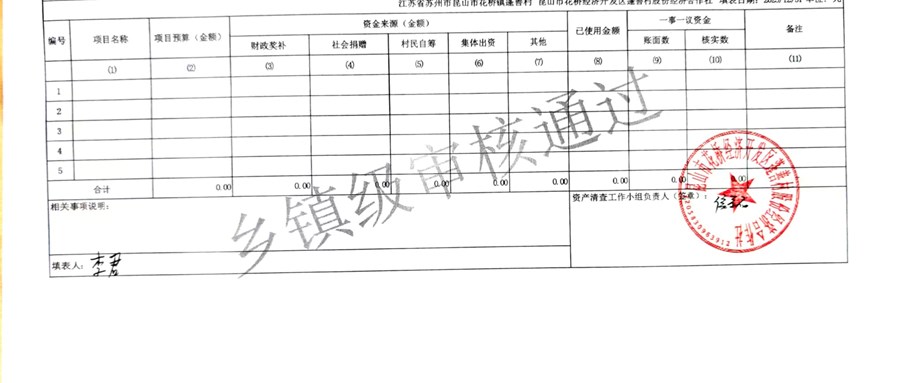 江苏省苏州市昆山市花桥镇蓬曹村 昆山市花桥经济开发区蓬曹村股份经济合作社 填表日期:
编号 项目名称 项目预算（金额） 资金来源（金额） 已使用金额 一事一议资金 备注
财政奖补 社会捐赠 村民自筹 集体出资 其他 账面数 核实数
(1) (2) (3) (4) (5) (6) (7) (8) (9) (10) (11)
1
2
3
4
5
合计 0.00 0.00 0.00 0.00 0.00 0.00 0.00 0.00 0.00
相关事项说明: 资产清查工作小组负责人（签章）:
填表人:
乡镇级审核通过